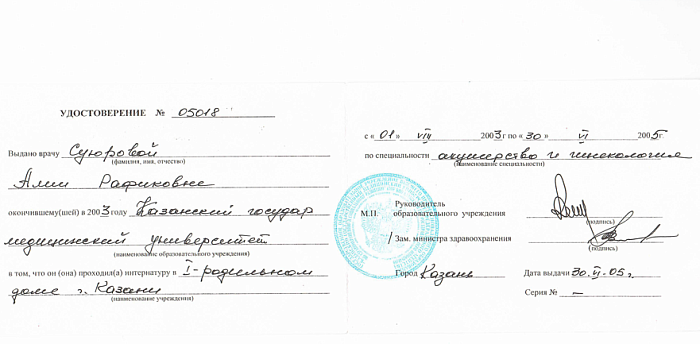 УДОСТОВЕРЕНИЕ № 05018
Выдано врачу Суюровой
(фамилия, имя, отчество)
Алии Рафиковне
окончившему(шей) в 2003 году Казанский государ
медицинский университет
(наименование образовательного учреждения)
в том, что он (она) проходил(а) интернатуру в I-родильном
доме г. Казани
(наименование учреждения)
с «01» VIII 2003г по «30» VI 2005г.
по специальности акушерство и гинекология
(наименование специальности)
Руководитель
М.П. образовательного учреждения
(подпись)
/ Зам. министра здравоохранения
(подпись)
Город Казань Дата выдачи 30.VI.05г.
Серия № –